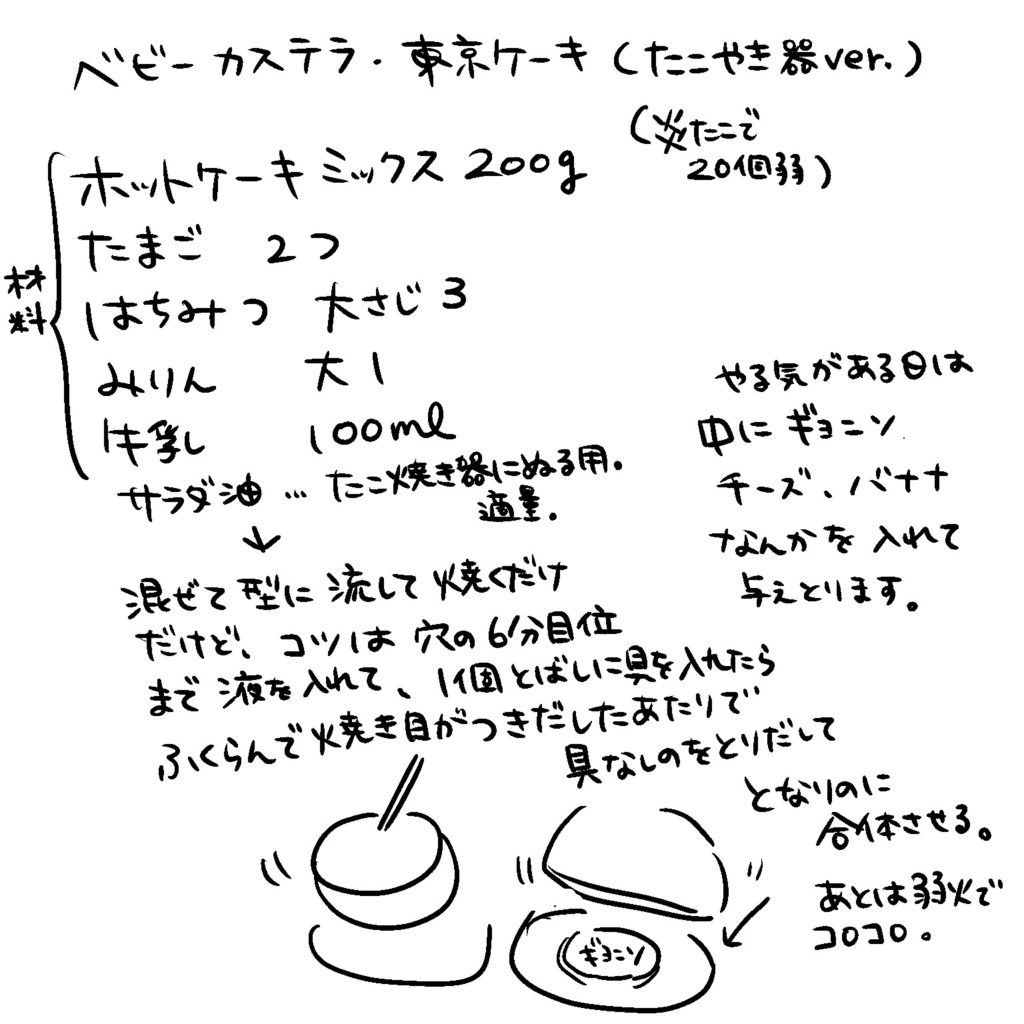 ベビーカステラ・東京ケーキ(たこやき器ver.)
(炎たこで
20個弱)
材料
ホットケーキミックス 200g
たまご 2つ
はちみつ 大さじ3
みりん 大1
牛乳 100ml
サラダ油…たこ焼き器にぬる用。
適量。
↓
混ぜて型に流して焼くだけ
だけど、コツは穴の6分目位
まで液を入れて、1個とばしに具を入れたら
ふくらんで焼き目がつきだしたあたりで
具なしのをとりだして
となりのに
合体させる。
あとは弱火で
コロコロ。
やる気がある日は
中にギョニソ
チーズ、バナナ
なんかを入れて
与えとります。
ギョニソ